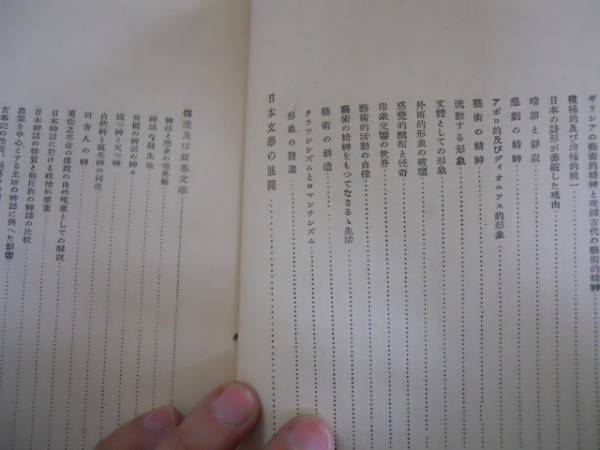 ギリシアの藝術的精神と我國古代の藝術的精神
積極的及び消極的統一
日本の詩形が萎縮した理由
喧囂と靜寂
悲劇の精神
アポロ的及びディオニソス的形象
藝術の精神
流動する形象
文體としての形象
外面的形象の破壞
感覺的醜惡と怪奇
印象交響の世界
藝術的活動の自律
藝術の精神をもつてなさるゝ生活
藝術の創造
クラツシシズムとロマンチシズム
形象の發論
日本文學の展開
傳說及び敍事文學
神話と歷史の境界線
神話の發生地
我國の神話の神々
國つ神と天つ神
自然神と祖先神の同化
田舍人の神
須佐之男命の傳說の自然現象としての解說
日本神話に於ける政治的要素
日本神話の特質と他民族の神話の比較
農業を中心とする生活の神話に與へた影響